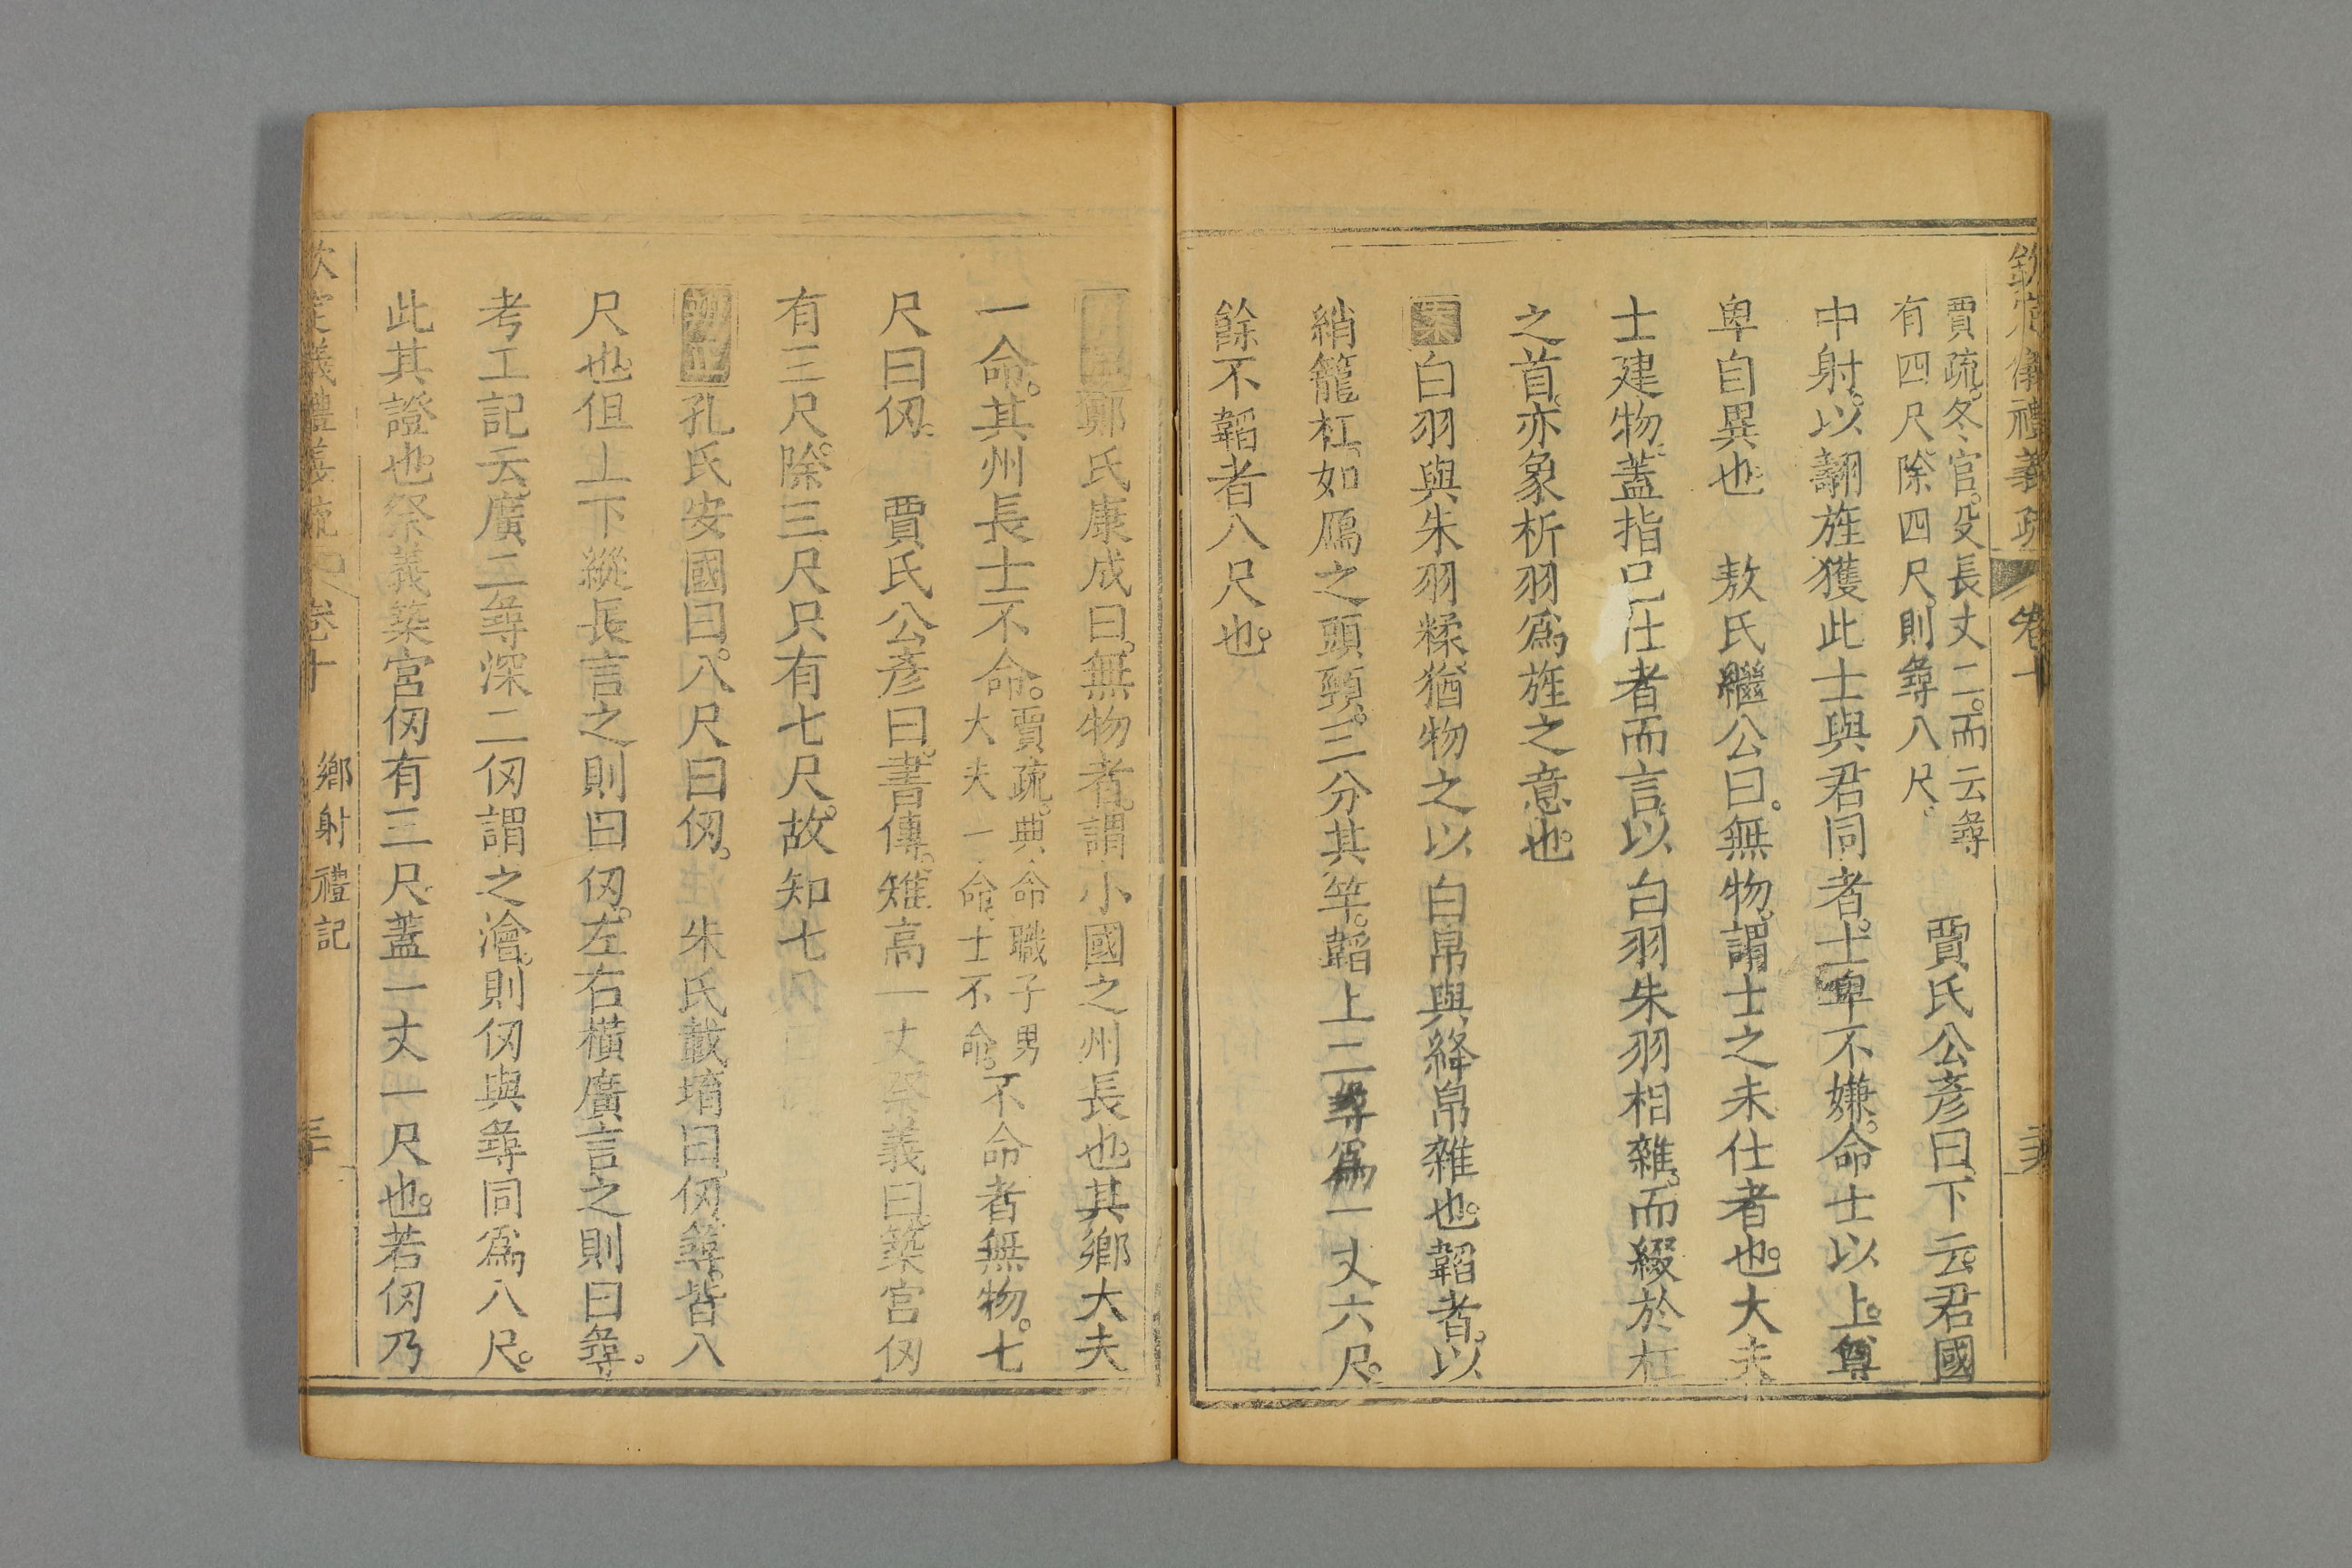 欽定儀禮義疏 卷十
賈疏。冬官。殳長丈二。而云尋
有四尺。除四尺。則尋八尺。
賈氏公彥曰。下云。君國
中射。以翿旌獲。此士與君同者。士卑不嫌。命士以上。尊
卑自異也 敖氏繼公曰。無物。謂士之未仕者也。大夫
士建物。蓋指已仕者而言。以白羽朱羽相雜。而綴於杠
之首。亦象析羽爲旌之意也。
案白羽與朱羽糅。猶物之以白帛與絳帛雜也。韜者。以
綃籠杠。如鴈之頭頸。三分其竿。韜上二尋爲一丈六尺。
餘不韜者八尺也。
鄭氏康成曰。無物者。謂小國之州長也。其鄉大夫
一命。其州長士不命。
賈疏。典命職。子男
大夫一命。士不命。
不命者無物。七
尺曰仞。 賈氏公彥曰。書傳。雉高一丈。祭義曰。築宮仞
有三尺。除三尺。只有七尺。故知七
孔氏安國曰。八尺曰仞。 朱氏載堉曰。仞尋。皆八
尺也。但上下縱長言之則曰仞。左右橫廣言之則曰尋。
考工記云。廣二尋深二仞謂之澮。則仞與尋同爲八尺。
此其證也。祭義築宮仞有三尺。蓋一丈一尺也。若仞乃
欽定儀禮義疏 卷十 鄉射禮記